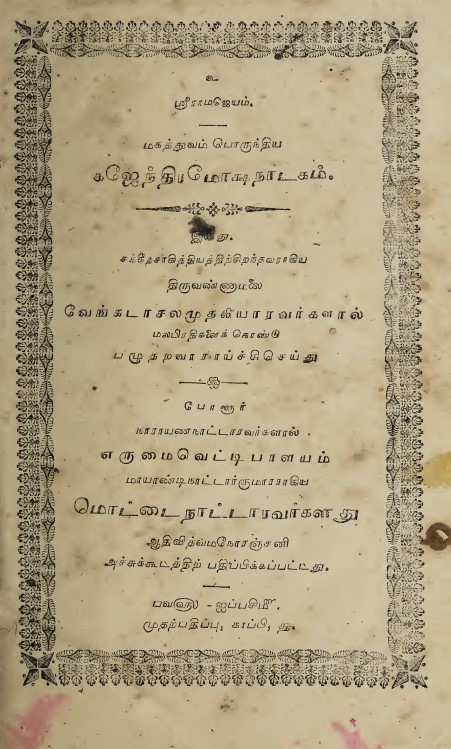 உ
ஸ்ரீராமஜெயம்.
மகத்துவம் பொருந்திய
கஜேந்திரமோக்ஷநாடகம்.
இஃது.
சங்கீதசாகித்தியத்திற்சிறந்தவராகிய
திருவண்ணாமலை
வேங்கடாசலமுதலியாரவர்களால்
பலபிரதிகளைக் கொண்டு
பழுதறவாராய்ச்சிசெய்து
போளூர்
நாராயணநாட்டாரவர்களால்
எருமைவெட்டிபாளையம்
மாயாண்டிநாட்டார்குமாரராகிய
மொட்டைநாட்டாரவர்களது
ஆதிவித்வமநோரஞ்சனி
அச்சுக்கூடத்திற் பதிப்பிக்கப்பட்டது.
பவஹு௵ - ஐப்பசி௴.
முதற்பதிப்பு, காப்பி,